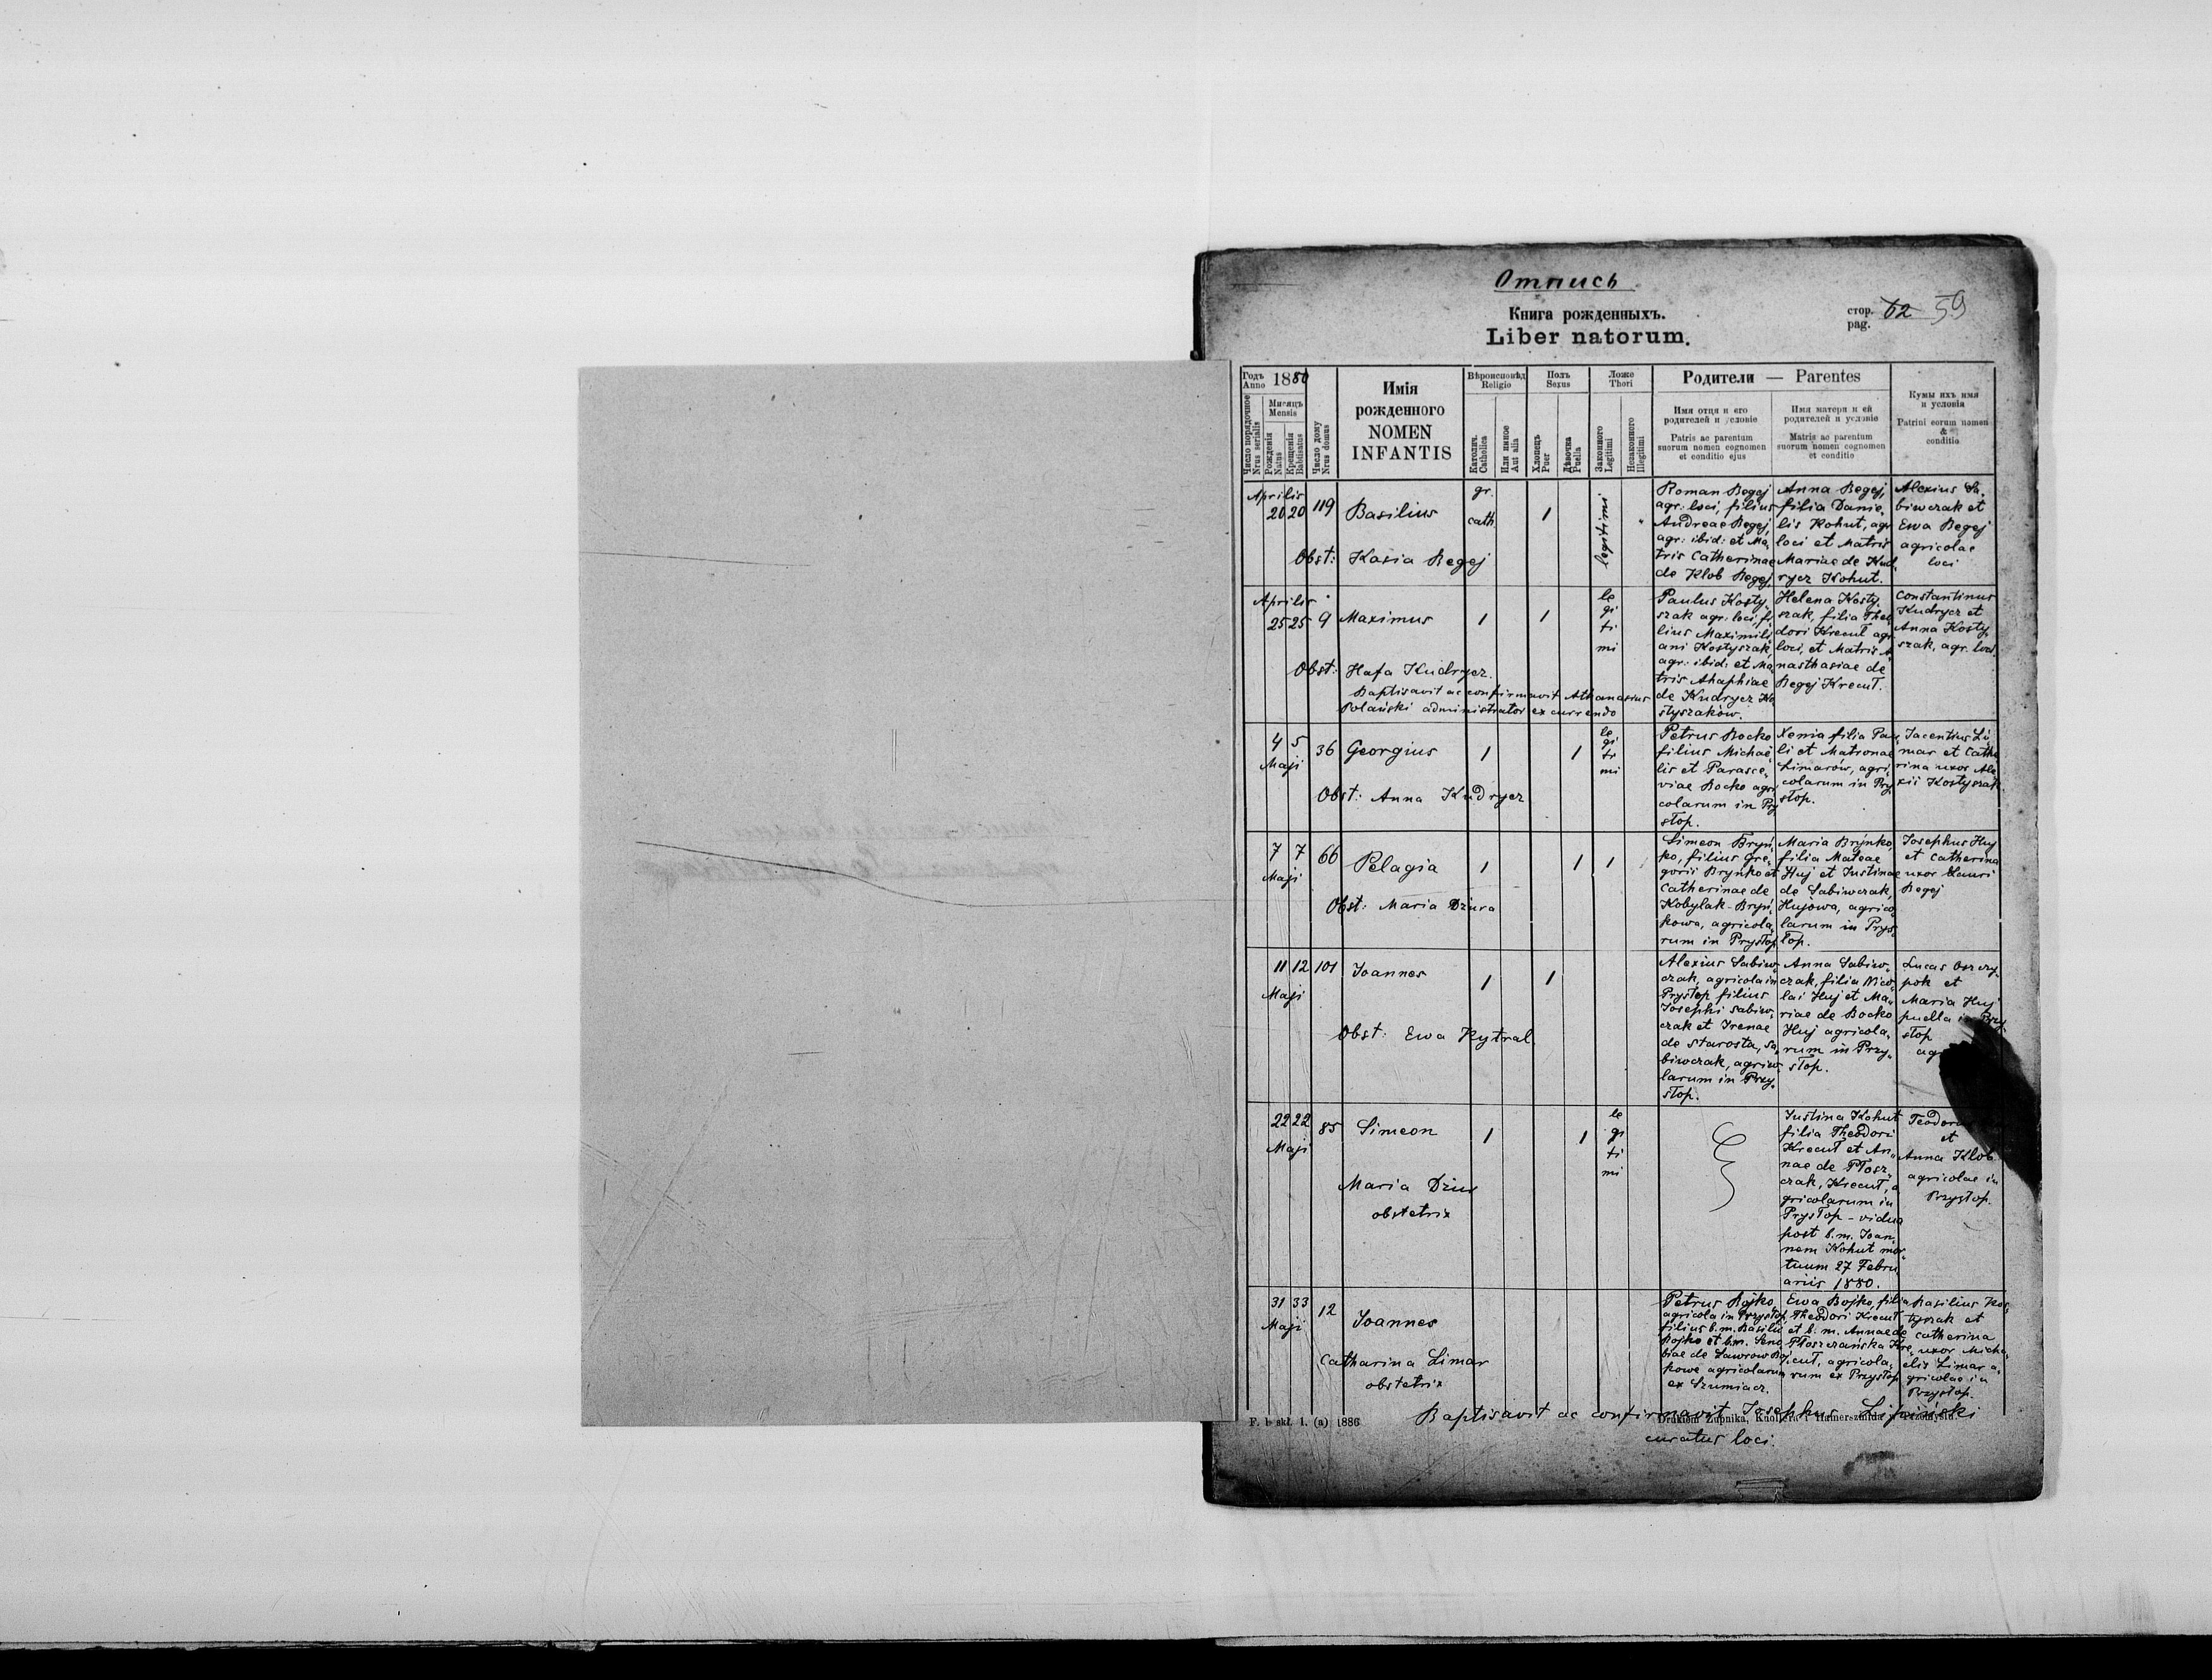 Отпись
Книга рожденныхъ.
Liber natorum.
стор. 62 59
pag.
Годъ Anno 1880
Мисяць Mensis
Число порядочное Nrus serialis
Рожденія Natus
Крещенія Babtisatus
Число дому Nrus domus
Имія
рожденного
NOMEN
INFANTIS
Вѣроисповѣд Religio
Католич. Catholica
Или инное Aut alia
Полъ Sexus
Хлопець Puer
Дѣвочка Puella
Ложе Thori
Законного Legitimi
Незаконного Illegitimi
Родители — Parentes
Имя отця и его
родителей и условіе
Patris ac parentum
suorum nomen cognomen
et conditio ejus
Имя матери и ей
родителей и условіе
Matris ac parentum
suorum nomen cognomen
et conditio
Кумы ихъ имя
и условія
Patrini eorum nomen
&
conditio
Aprilis
20 20 119 Basilius
gr.
cath.
1
legitimi
Obst: Kasia Begej
Roman Begej
agr. loci, filius
Andreae Begej,
agr: ibid: et Ma-
tris Catherinae
de Klob Begej
Anna Begej,
filia Danie-
lis Kohut, agr
loci et Matris
Mariae de Kud-
rycz Kohut.
Alexius Sa-
biwczak et
Ewa Begej
agricolae
loci
Aprilis
25 25 9 Maximus 1 1
le
gi
ti
mi
Obst: Hafa Kudrycz.
Baptisavit ac confirmavit Athanasius
Polański administrator excurrendo
Paulus Kosty-
szak agr. loci, fi-
lius Maximili-
ani Kostyszak,
agr: ibid: et Ma-
tris Ahaphiae
de Kudrycz Ko-
styszaków.
Helena Kosty-
szak, filia Theo-
dori Krecuł agr.
loci, et Matris A-
nasthasiae de
Begej Krecuł.
Constantinus
Kudrycz et
Anna Kosty-
szak, agr. loci
4 5 36 Georgius 1 1
Maji
le
gi
ti
mi
Obst: Anna Kudrycz
Petrus Bocko
filius Michae-
lis et Parasce-
viae Bocko agri-
colarum in Pry-
słop.
Xenia filia Pau-
li et Matronae
Limarów, agri-
colarum in Pry-
słop.
Jacentius Li-
mar et Cathe-
rina uxor Ale-
xii Kostyszak
7 7 66 Pelagia 1 1 1
Maji
Obst: Maria Dziura
Simeon Bryń-
ko, filius Gre-
gorii Brynko et
Catherinae de
Kobylak-Bryń-
kowa, agricola-
rum in Prysłop
Maria Brýnko,
filia Mateae
Huj et Justinae
de Sabiwczak,
Hujowa, agrico-
larum in Prys-
łop.
Josephus Huj
et Catherina
uxor Lauri
Begej
11 12 101 Joannes 1 1
Maji
Obst: Ewa Kytral
Alexius Sabiw-
czak, agricola in
Prysłop filius
Josephi Sabiw-
czak et Irenae
de Starosta, Sa-
biwczak, agrico-
larum in Przy-
słop.
Anna Sabiw-
czak, filia Nico-
lai Huj et Ma-
riae de Bocko
Huj agricola-
rum in Przy-
słop.
Lucas
pok et
Maria Huj
puella in Przy-
słop
22 22 85 Simeon 1 1
Maji
le
gi
ti
mi
Maria Dziur
obstetrix
Justina Kohut
filia Theodori
Krecuł et An-
nae de Płosz-
czak, Krecuł, a-
gricolarum in
Prysłop - vidua
post b.m. Joan-
nem Kohut mor-
tuum 27 Febru-
ariis 1880.
et
Anna Klob
agricolae in
Przysłop.
31 33 12 Joannes
Maji
Catharina Limar
obstetrix
Petrus Bojko,
agricola in Przysłop,
filius b.m. Basilii
Bojko et b.m. Seno-
biae de Lawrow Boj-
kowe agricolarum
ex Szumiacz.
Ewa Bojko, filia
Theodori Krecuł
et b.m. Annae de
Płoszczańska Kre-
cuł, agricola-
rum ex Przysłop
Basilius Kos-
tyszak et
Catherina
uxor Micha-
elis Limar a-
gricolae in
Przysłop.
Baptisavit ac confirmavit Josephus Lipiński
curatus loci.
F. b skł. 1. (a) 1886
Drukiem Żupnika, Knollera i Hamerszmidta w Przemyślu.